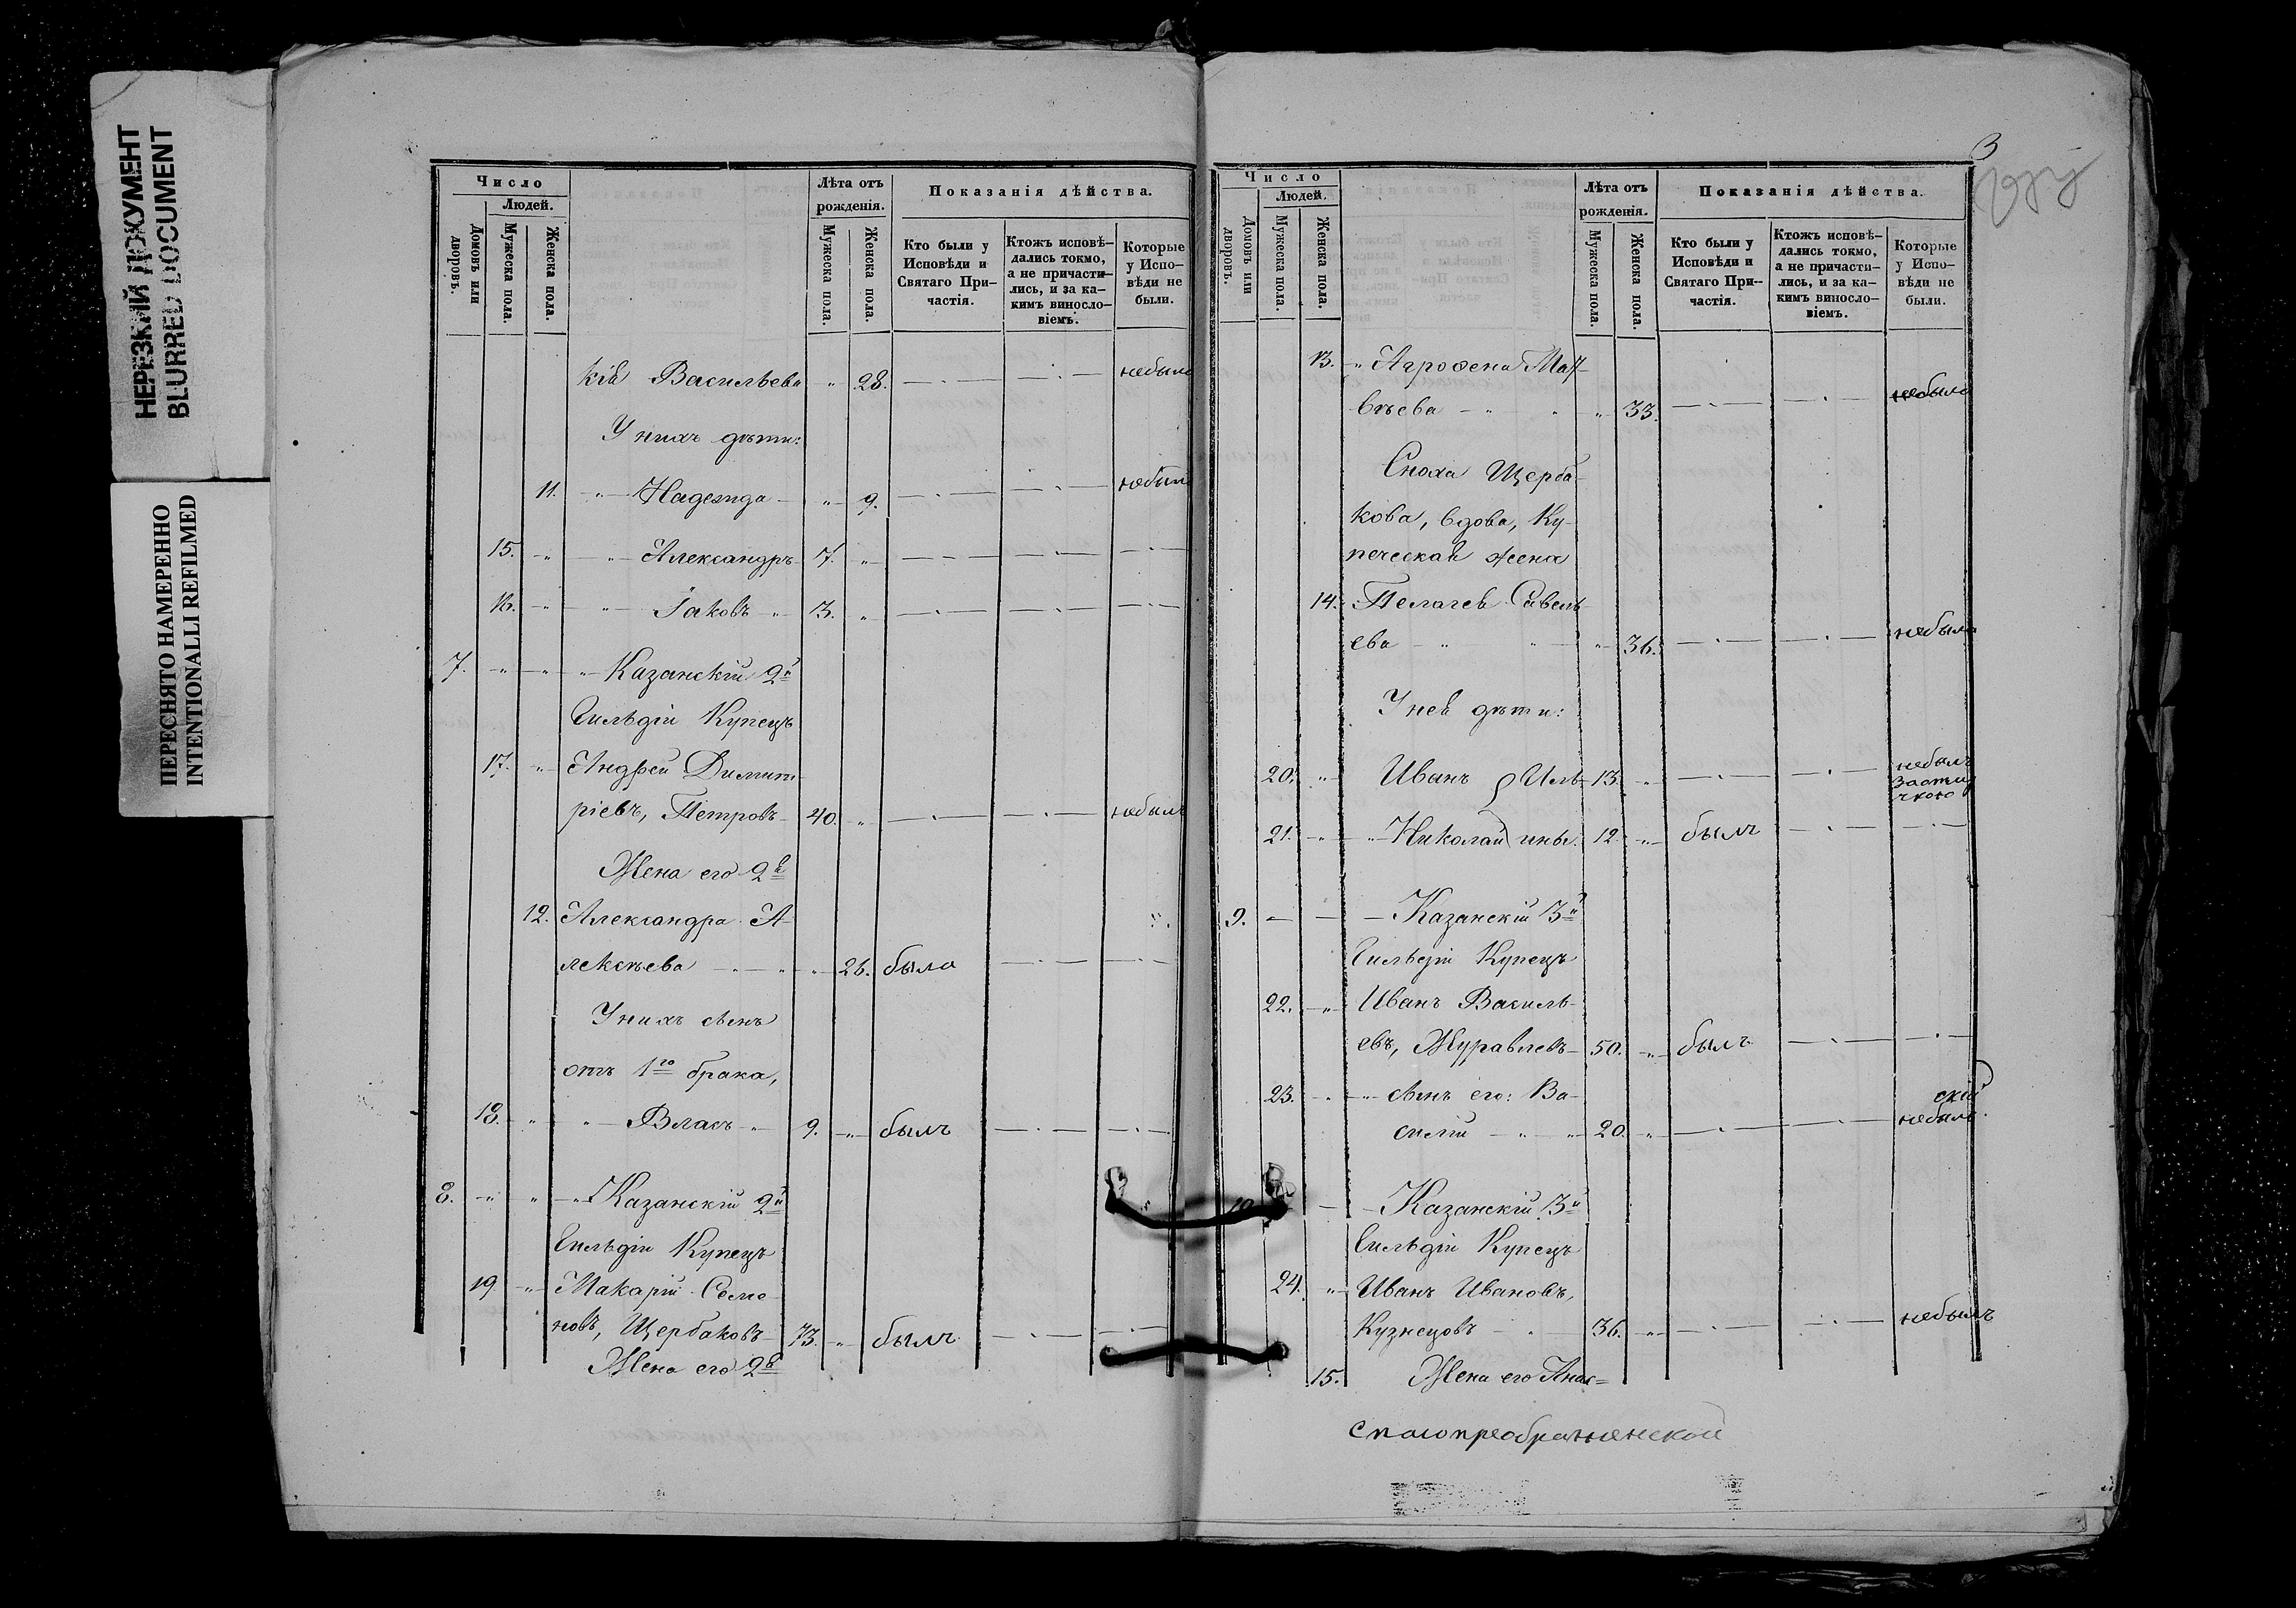 НЕРЕЗКИЙ ДОКУМЕНТ
BLURRED DOCUMENT
ПЕРЕСНЯТО НАМЕРЕННО
INTENTIONALLI REFILMED
Число
Людей.
Домовъ или дворовъ.
Мужеска пола.
Женска пола.
Лѣта отъ рожденія.
Мужеска пола.
Женска пола.
Показанія дѣйства.
Кто были у Исповѣди и Святаго При-частія.
Ктожъ исповѣ-дались токмо, а не причасти-лись, и за ка-кимъ винносло-віемъ.
Которые у Испо-вѣди не были.
кія Васильева " 28. небыла
У нихъ дѣти:
11. " Надежда " 9. небыла
15. " " Александръ 7. "
16. " " Іаковъ " 3. "
7. " " " Казанскій 2й
Гильдіи Купецъ
17. " Андрей Димит-
ріевъ, Петровъ 40. " небылъ
Жена его 2я
12. Александра А-
лексѣева " " 26. была
У нихъ сынъ
отъ 1го брака,
18. " " Власъ " 9. " былъ
8. " " " Казанскій 2й
Гильдіи Купецъ
19 " Макарій Семе-
новъ, Щербаковъ 73. " былъ
Жена его 2я
3
Число
Людей.
Домовъ или дворовъ.
Мужеска пола
Женска пола.
Лѣта отъ рожденія.
Мужеска пола.
Женска пола.
Показанія дѣйства.
Кто были у Исповѣди и Святаго При-частія.
Ктожъ исповѣ-дались токмо, а не причасти-лись, и за ка-кимъ винносло-віемъ.
Которые у Испо-вѣди не были.
13. " Агрофена Мат-
вѣева " " " 33. небыла
Сноха Щерба-
кова, вдова, Ку-
печеская жена
14. Пелагея Савель-
ева " " " 36. небыла
У нея дѣти:
20. " Иванъ Иль- 13. " небылъ
заотлу
чкою
21. " " Николай ины. 12. " былъ
9. Казанскій 3й
Гильдіи Купецъ
22. " Иванъ Василь-
евъ, Журавлевъ 50. " былъ
23. " сынъ его: Ва-
силій " " 20. " небылъ
скій
10 Казанскій 3й
Гильдіи Купецъ
24. " Иванъ Ивановъ,
Кузнецовъ " 36. " небылъ
15. Жена его Анас=
Спасопреображенской